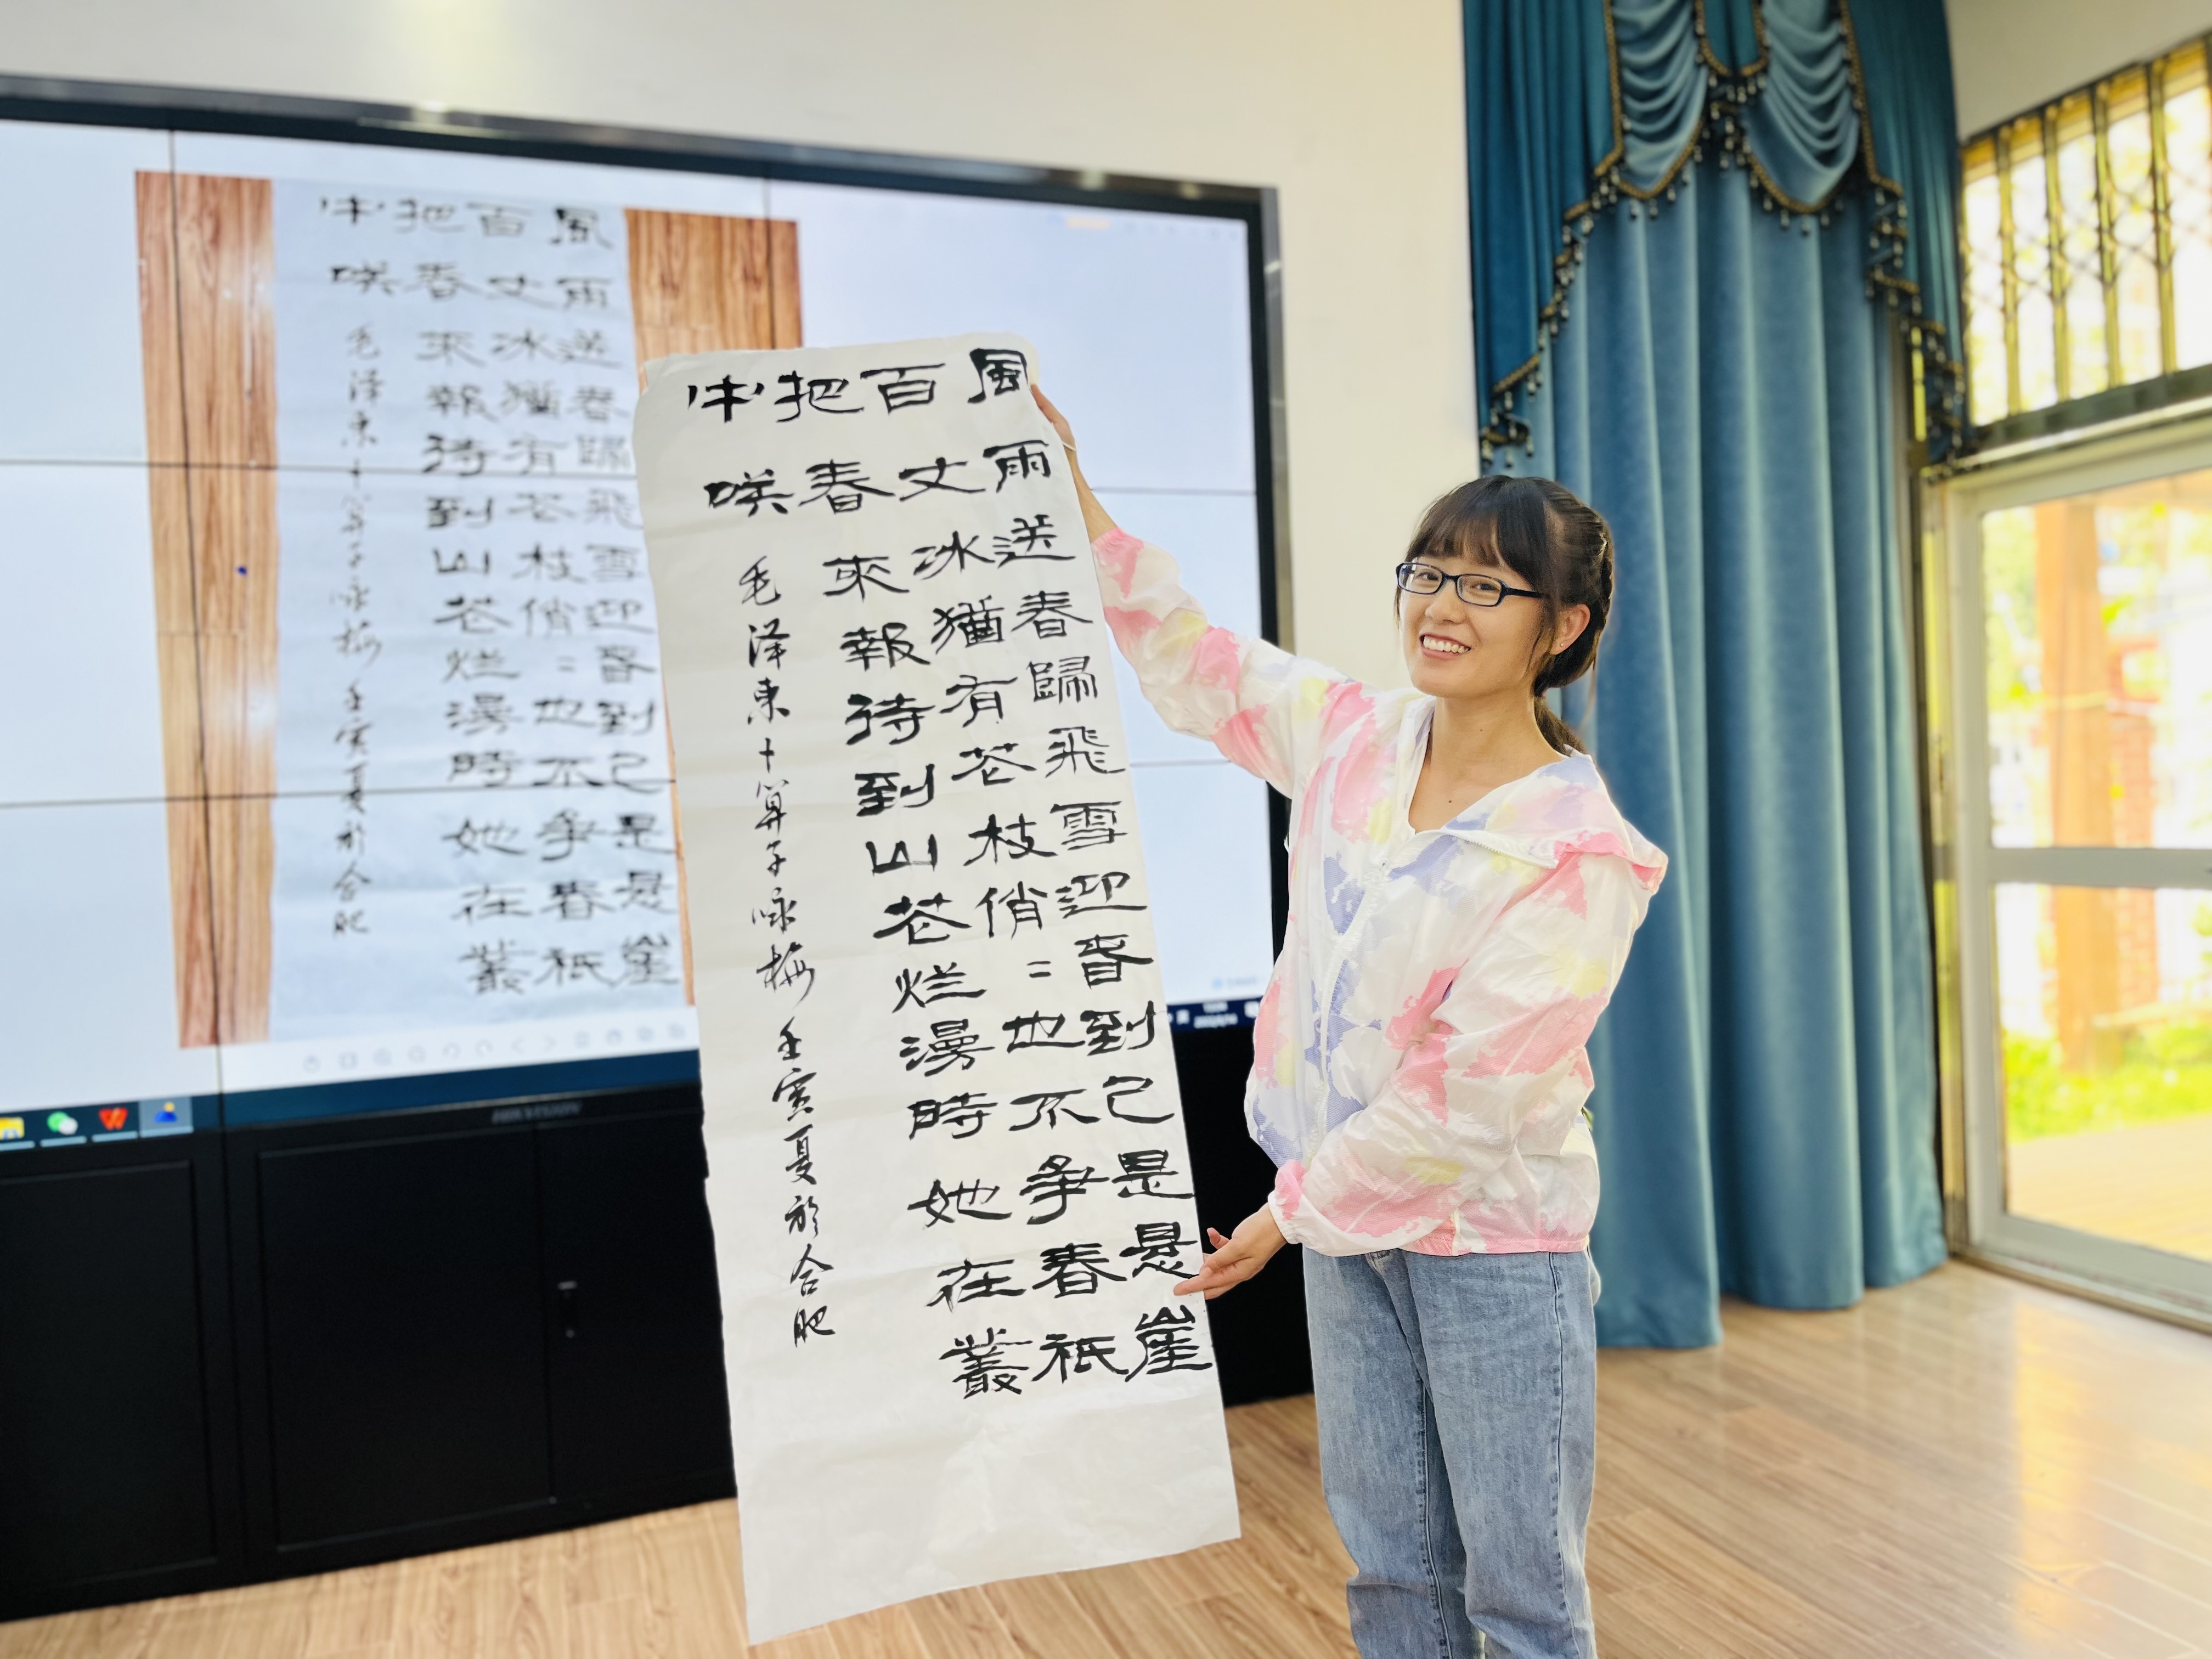 風雨送春歸飛雪迎旾到已是悬崖
百丈冰猶有花枝俏=也不争春祇
把春來報待到山花烂漫時她在叢
中咲
毛泽東卜算子咏梅 壬寅夏於合肥
風雨送春歸飛雪迎旾到已是悬崖
百丈冰猶有花枝俏=也不争春祇
把春來報待到山花烂漫時她在叢
中咲
毛泽東卜算子咏梅 壬寅夏於合肥